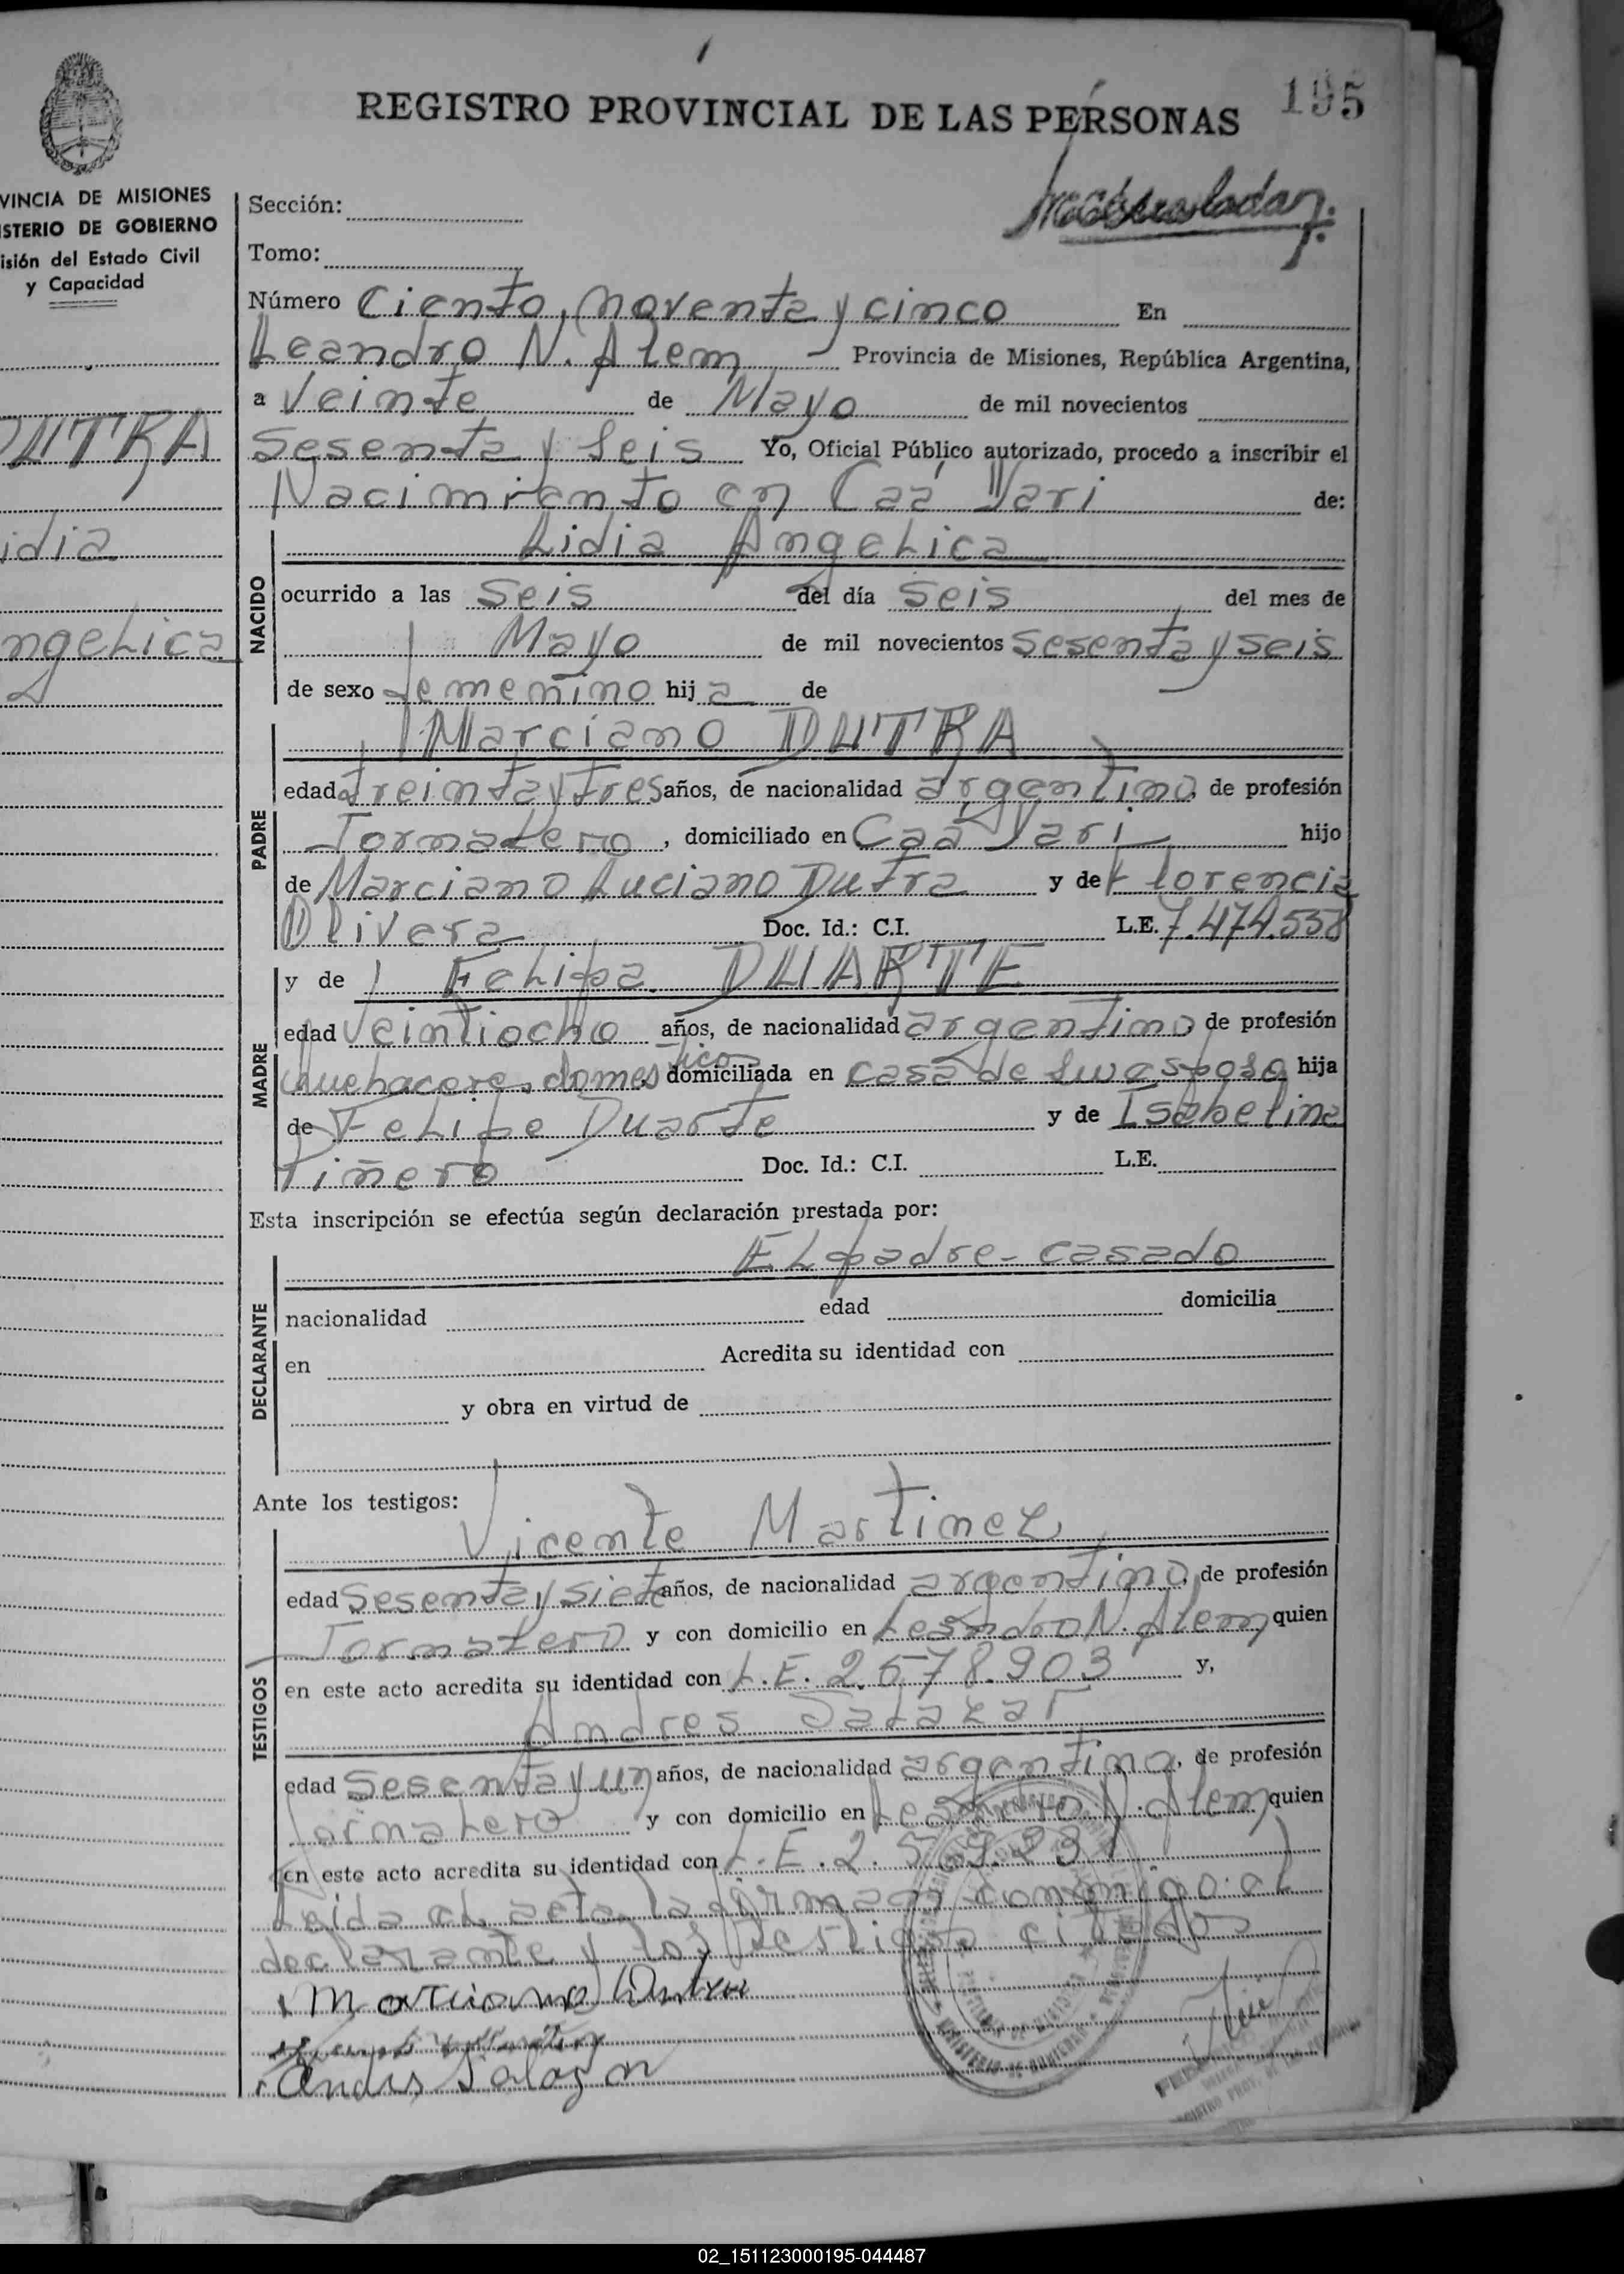 195
REGISTRO PROVINCIAL DE LAS PERSONAS
VINCIA DE MISIONES
ISTERIO DE GOBIERNO
isión del Estado Civil
y Capacidad
DUTRA
idia
ngelica
Sección:
Tomo:
Número Ciento, noventa y cinco En
Leandro N. Alem Provincia de Misiones, República Argentina,
a Veinte de Mayo de mil novecientos
Sesenta y Seis Yo, Oficial Público autorizado, procedo a inscribir el
Nacimiento en Caá Yari de:
NACIDO
Lidia Angelica
ocurrido a las Seis del día Seis del mes de
Mayo de mil novecientos Sesenta y seis
de sexo femenino hija de
PADRE
Marciano DUTRA
edad treinta y tres años, de nacionalidad argentino, de profesión
Jornalero, domiciliado en Caá Yari hijo
de Marciano Luciano Dutra y de Florencia
Olivera Doc. Id.: C.I. L.E. 7.474.558
MADRE
y de Felipa DUARTE
edad Veintiocho años, de nacionalidad argentino, de profesión
Quehaceres domesticos domiciliada en casa de su esposo hija
de Felipe Duarte y de Isabelina
Piñero Doc. Id.: C.I. L.E.
Esta inscripción se efectúa según declaración prestada por:
DECLARANTE
El padre - casado
nacionalidad edad domicilia
en Acredita su identidad con
y obra en virtud de
Ante los testigos:
TESTIGOS
Vicente Martinez
edad Sesenta y siete años, de nacionalidad argentino, de profesión
Jornalero y con domicilio en Leandro N. Alem quien
en este acto acredita su identidad con L.E. 2.578.903 y,
Andres Salazar
edad Sesenta y un años, de nacionalidad argentino, de profesión
Jornalero y con domicilio en Leandro N. Alem quien
en este acto acredita su identidad con L.E. 2.569.
Leida el acta, la firman conmigo el
declarante y los testigos citados
Marciano Dutra
Andres Salazar
02_151123000195-044487